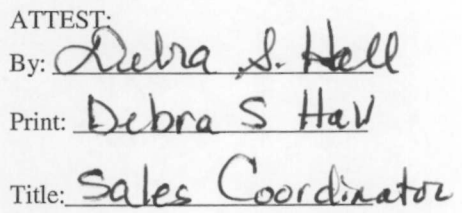 ATTEST:
By: Debra S. Hall
Print: Debra S Hall
Title: Sales Coordinator